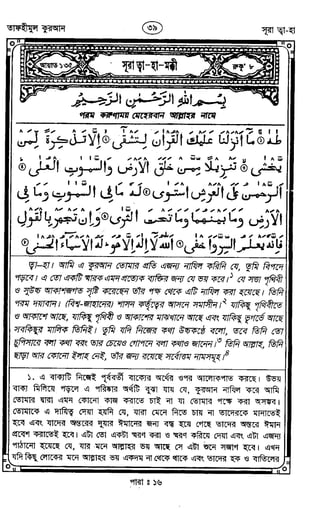 তাফহীমুল কুরআন ৩৯ সূরা ত্বা-হা
আয়াত ১৩৫ সূরা ত্বা-হা-মক্কী রুকূ' ৮
بِسْمِ اللهِ الرَّحْمٰنِ الرَّحِيْمِ
পরম করুণাময় মেহেরবান আল্লাহর নামে
طٰهٰ ۞ مَا أَنْزَلْنَا عَلَيْكَ الْقُرْآنَ لِتَشْقٰى ۞ إِلَّا تَذْكِرَةً لِّمَنْ
يَخْشٰى ۞ تَنْزِيْلًا مِّمَّنْ خَلَقَ الْأَرْضَ وَالسَّمٰوٰتِ الْعُلٰى ۞
الرَّحْمٰنُ عَلَى الْعَرْشِ اسْتَوٰى ۞ لَهٗ مَا فِي السَّمٰوٰتِ وَمَا فِي
الْأَرْضِ وَمَا بَيْنَهُمَا وَمَا تَحْتَ الثَّرٰى ۞ وَإِنْ تَجْهَرْ بِالْقَوْلِ
فَإِنَّهٗ يَعْلَمُ السِّرَّ وَأَخْفٰى ۞ اَللهُ لَا إِلٰهَ إِلَّا هُوَ لَهُ الْأَسْمَاءُ الْحُسْنٰى ۞
ত্বা-হা। আমি এ কুরআন তোমার প্রতি এজন্য নাযিল করিনি যে, তুমি বিপদে
পড়বে। এ তো একটি স্মারক এমন প্রত্যেক ব্যক্তির জন্য যে ভয় করে।১ যে সত্তা পৃথিবী
ও সুউচ্চ আকাশজগত সৃষ্টি করেছেন তাঁর পক্ষ থেকে এটি নাযিল করা হয়েছে। তিনি
পরম দয়াবান। (বিশ্ব-জাহানের) শাসন কর্তৃত্বের আসনে সমাসীন।২ যাকিছু পৃথিবীতে
ও আকাশে আছে, যাকিছু পৃথিবী ও আকাশের মাঝখানে আছে এবং যাকিছু ভূগর্ভে আছে
সবকিছুর মালিক তিনিই। তুমি যদি নিজের কথা উচ্চকণ্ঠে বলো, তবে তিনি তো
চুপিসারে বলা কথা বরং তার চেয়েও গোপনে বলা কথাও জানেন।৩ তিনি আল্লাহ, তিনি
ছাড়া আর কোনো ইলাহ নেই, তাঁর জন্য রয়েছে সর্বোত্তম নামসমূহ।৪
১. এ বাক্যটি নিজেই পূর্ববর্তী বাক্যের অর্থের ওপর আলোকপাত করছে। উভয়
বাক্য মিলিয়ে পড়লে এ পরিষ্কার অর্থটি বুঝা যায় যে, কুরআন নাযিল করে আমি
তোমার দ্বারা এমন কোনো কাজ করাতে চাই না যা তোমার পক্ষে করা অসম্ভব।
তোমাকে এ দায়িত্ব দেয়া হয়নি যে, যারা মেনে নিতে চায় না তাদেরকে মানাতেই
হবে এবং যাদের অন্তরের দুয়ার ঈমানের জন্য বন্ধ হয়ে গেছে তাদের অন্তরে ঈমান
প্রবেশ করাতেই হবে। এটা তো একটা স্মরণ করা ও স্মরণ করিয়ে দেয়া এবং এটা এজন্য
পাঠানো হয়েছে যে, যার মনে আল্লাহর ভয় আছে সে এটা শুনে সজাগ হবে। এখন
যদি কিছু লোকের মনে আল্লাহর ভয় একদম না থেকে থাকে এবং তাদের হক ও বাতিলের
পারা : ১৬